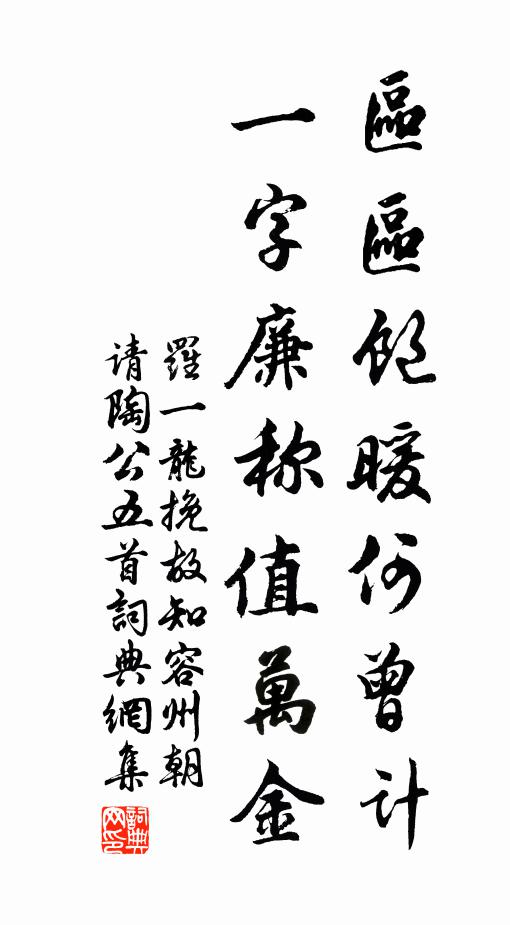 區區飽暖何曾計
一字廉称值萬金
羅一龍挽故知容州朝
请陶公五首詞典網集
詞典网印